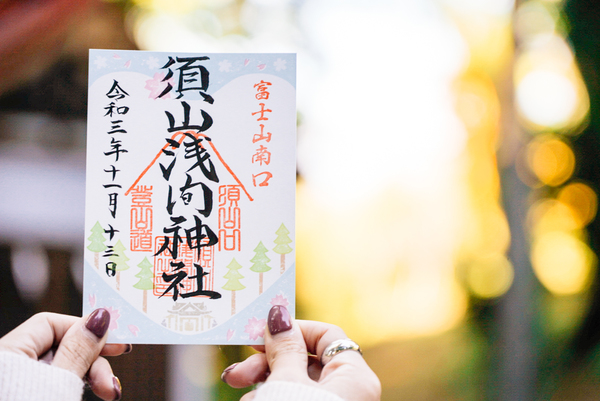 富士山南口
須山浅間神社
須山口
登山道
令和三年十一月十三日